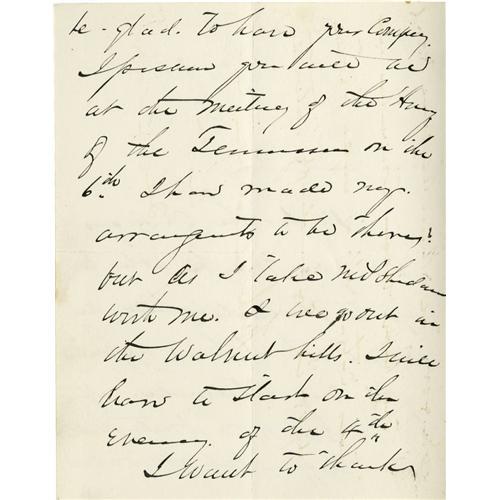 be - glad. to have your Company.
I presume you will be
at the meeting of the Army
of the Tennessee on the
6th. I have made my
arrangements to be there,
but as I take Mrs Sheridan
with me. I
the Walnut hills. I will
have to start on the
evening. of the 4th
I want to thank